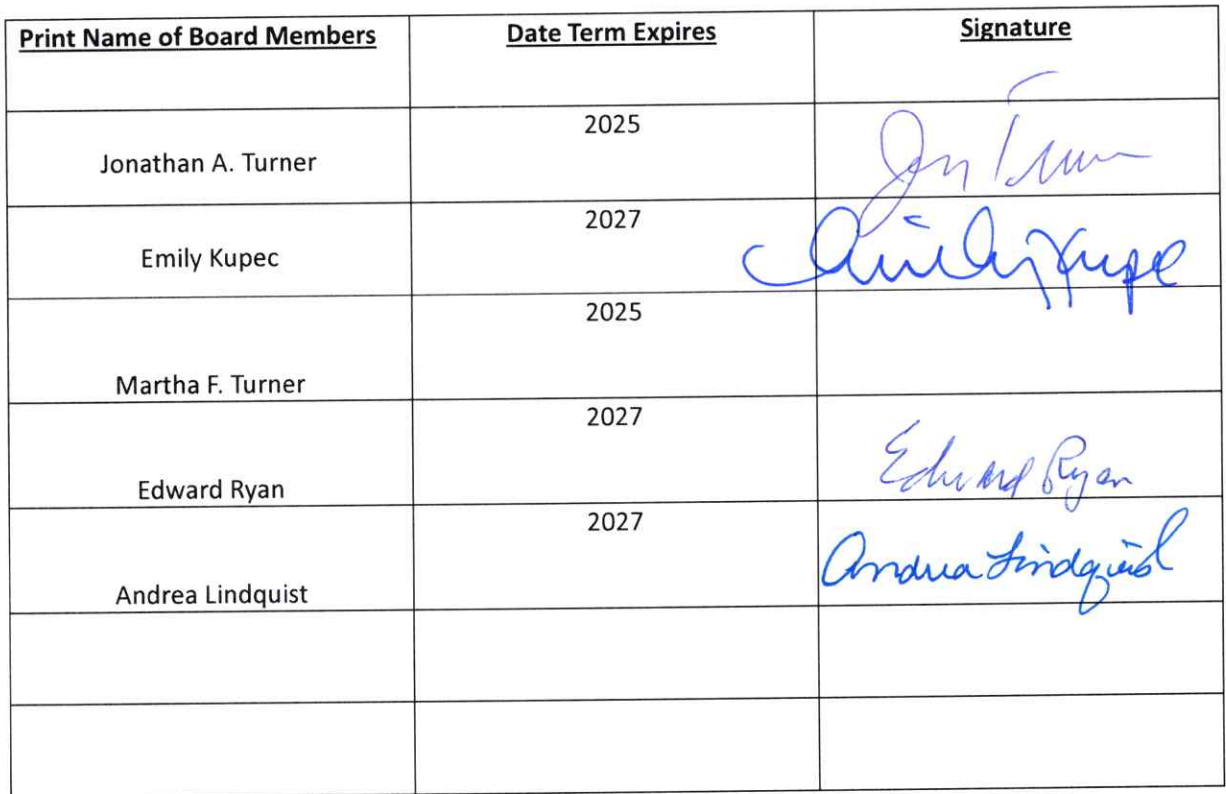 Print Name of Board Members Date Term Expires Signature
Jonathan A. Turner 2025 Jon Turner
Emily Kupec 2027 Emily Kupec
Martha F. Turner 2025
Edward Ryan 2027 Edward Ryan
Andrea Lindquist 2027 Andrea Lindquist